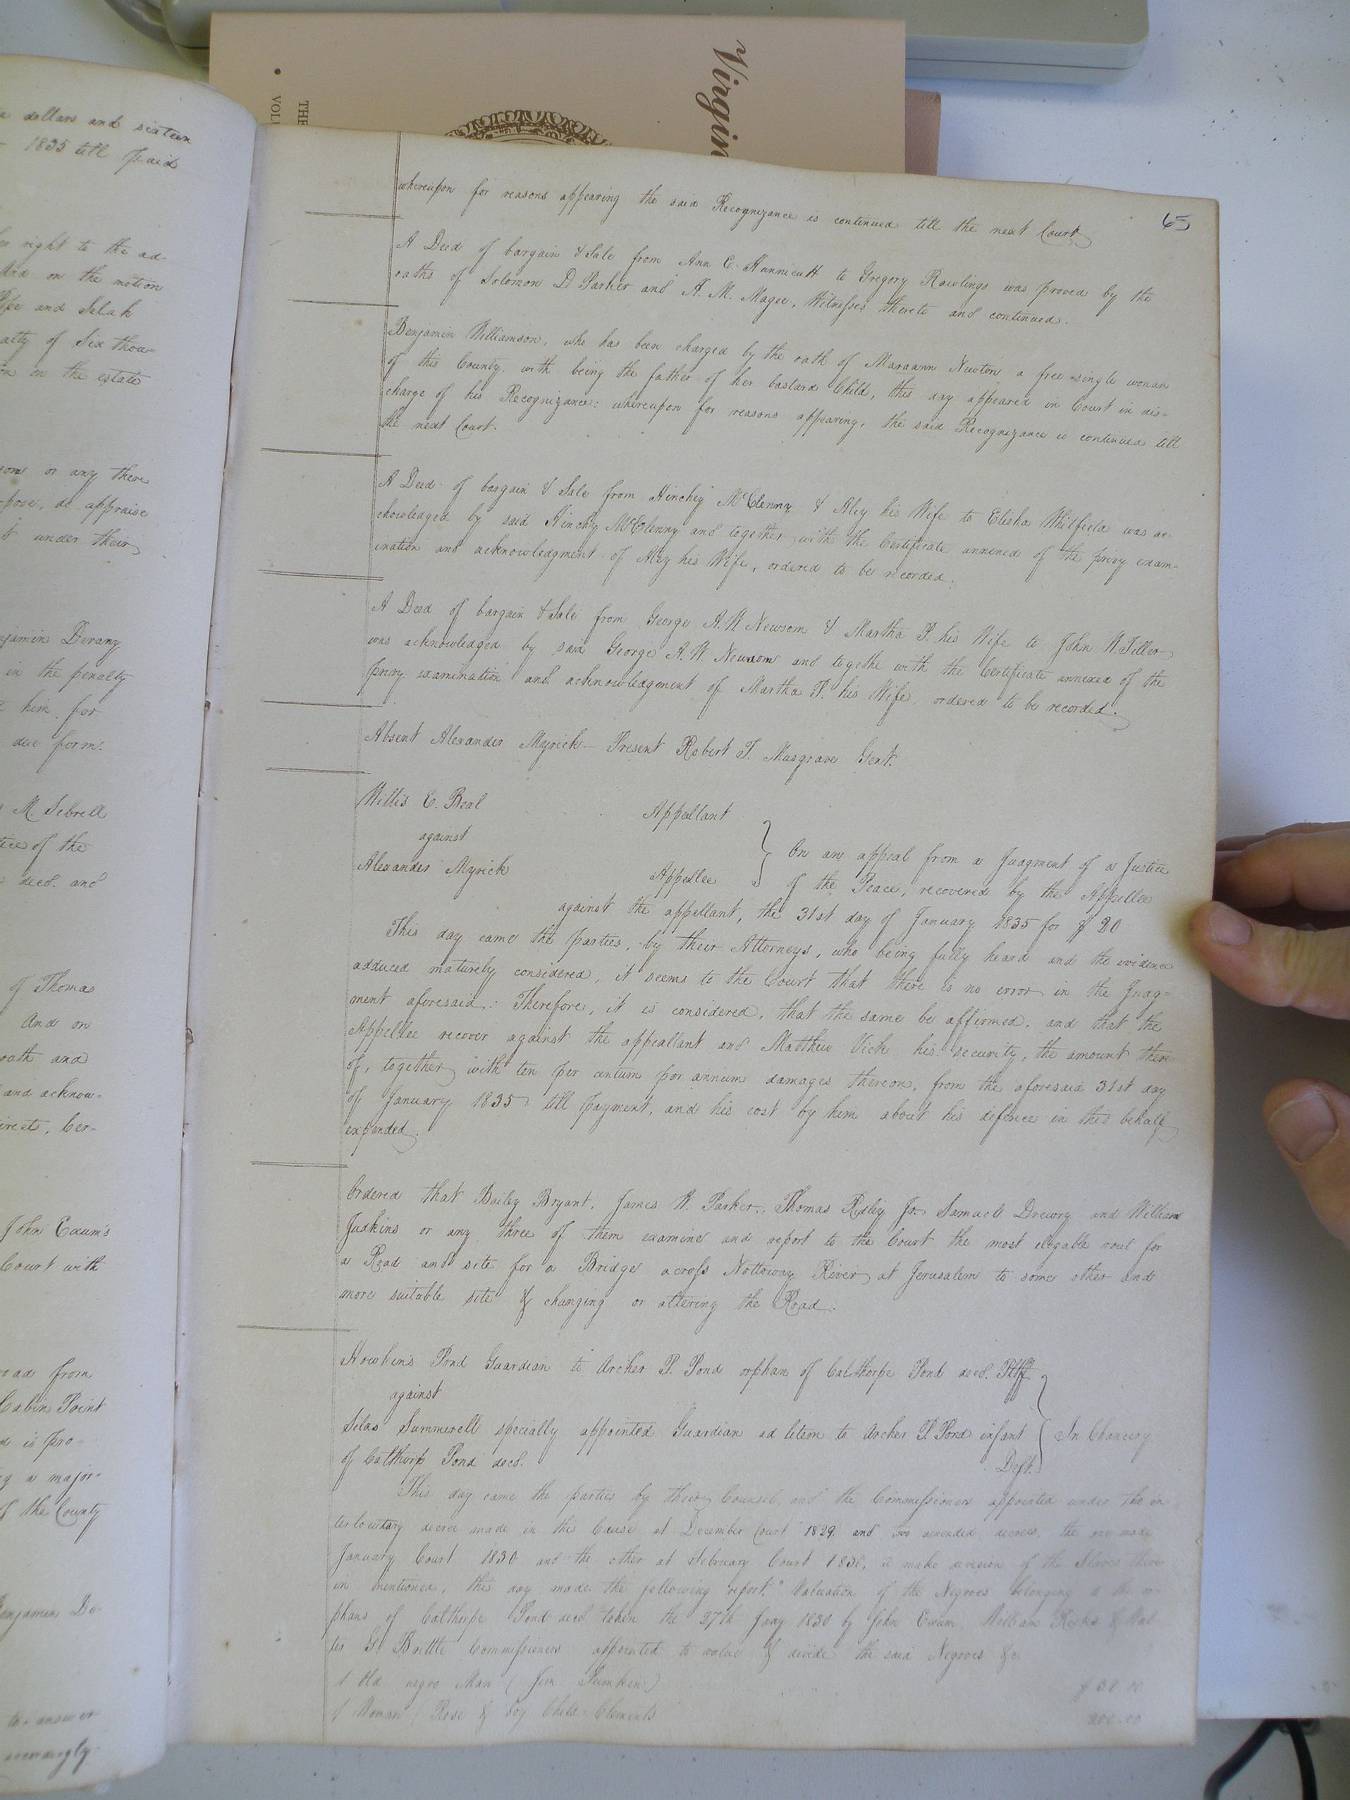 Virgin
THE
VOL
a dollars and sixteen
1835 till paid
right to the ad-
And on the motion
and Selah
alty of Six thou-
on on the estate
or any three
-pose, do appraise
under their
Benjamin Devany
in the penalty
him for
due form.
M. Sebrell
of the
decd. and
of Thomas
And on
oath and
and acknow-
Cer-
John Exum's
Court with
road from
Cabin Point
is pro-
a major-
of the County
Benjamin De-
to answer
accordingly
65
whereupon for reasons appearing the said Recognizance is continued till the next Court
A Deed of bargain & Sale from Ann E. Hunnicutt to Gregory Rawlings was proved by the
oaths of Solomon D Parker and A. M. Magee, Witnesses thereto and continued.
Benjamin Williamson, who has been charged by the oath of Maraann Newton a free single woman
of this County with being the father of her bastard Child, this day appeared in Court in dis-
charge of his Recognizance: whereupon for reasons appearing, the said Recognizance is continued till
the next Court.
A Deed of bargain & Sale from Hinchey McClenny & Aley his Wife to Elisha Whitfield was ac-
knowledged by said Hinchy McClenny and together with the Certificate annexed of the privy exam-
ination and acknowledgment of Aley his Wife, ordered to be recorded.
A Deed of bargain & Sale from George A. W Newsom & Martha T. his Wife to John W. Teller
was acknowledged by said George A. W Newsom and togethe with the Certificate annexed of the
privy examination and acknowledgement of Martha T. his Wife ordered to be recorded.
Absent Alexander Myrick - Present Robert T. Musgrave Gent.
Willis E. Beal Appellant
against
Alexander Myrick Appellee
On an appeal from a Judgment of a Justice
of the Peace, recovered by the Appellee
against the appellant, the 31st day of January 1835 for $ 20
This day came the parties, by their Attorneys, who being fully heard and the evidence
adduced maturely considered, it seems to the Court that there is no error in the Judg-
ment aforesaid: Therefore, it is considered, that the same be affirmed, and that the
Appellee recover against the appellant and Matthew Vick his security, the amount there
of, together with ten per centum per annum damages thereon, from the aforesaid 31st day
of January 1835 till payment, and his cost by him about his defence in this behalf
expended.
Ordered that Bailey Bryant, James W. Parker, Thomas Ridley Jr. Samuel Drewry and William
Judkins or any three of them examine and report to the Court the most elegable rout for
a Road and site for a Bridge across Nottoway River at Jerusalem to some other and
more suitable site & changing or altering the Road.
Howkins Pond Guardian to Archer P. Pond orphan of Calthorpe Pond decd. Pltff
against
Silas Summerell specially appointed Guardian ad litem to Archer P. Pond infant
of Calthorp Pond decd. Deft.
In Chancery
This day came the parties by their Counsel, and the Commissioners appointed under the in
terlocutory decree made in this Cause at December Court 1829 and two amended decrees, the one made
January Court 1830 and the other at February Court 1830, to make division of the Slaves there
in mentioned, this day made the following report. "Valuation of the Negroes belonging to the or-
phans of Calthorpe Pond decd. taken the 27th Jany 1830 by John Exum William Ricks & Wal-
ter G Brittle Commissioners appointed to value & divide the said Negroes &c
1 Old negro Man (Jim Pumkin)
1 Woman (Rose & boy Child Clements 200.00